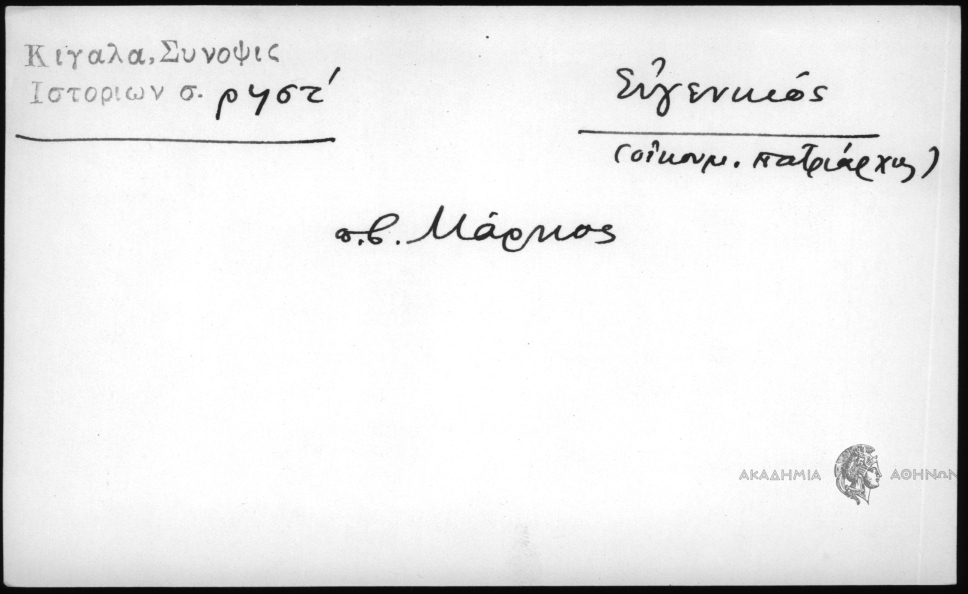 Κιγαλα, Συνοψις
Ιστοριων σ. ρηστ´
Εὐγενικός
(οἰκουμ. πατριάρχης)
π.β. Μάρκος
ΑΚΑΔΗΜΙΑ ΑΘΗΝΩΝ